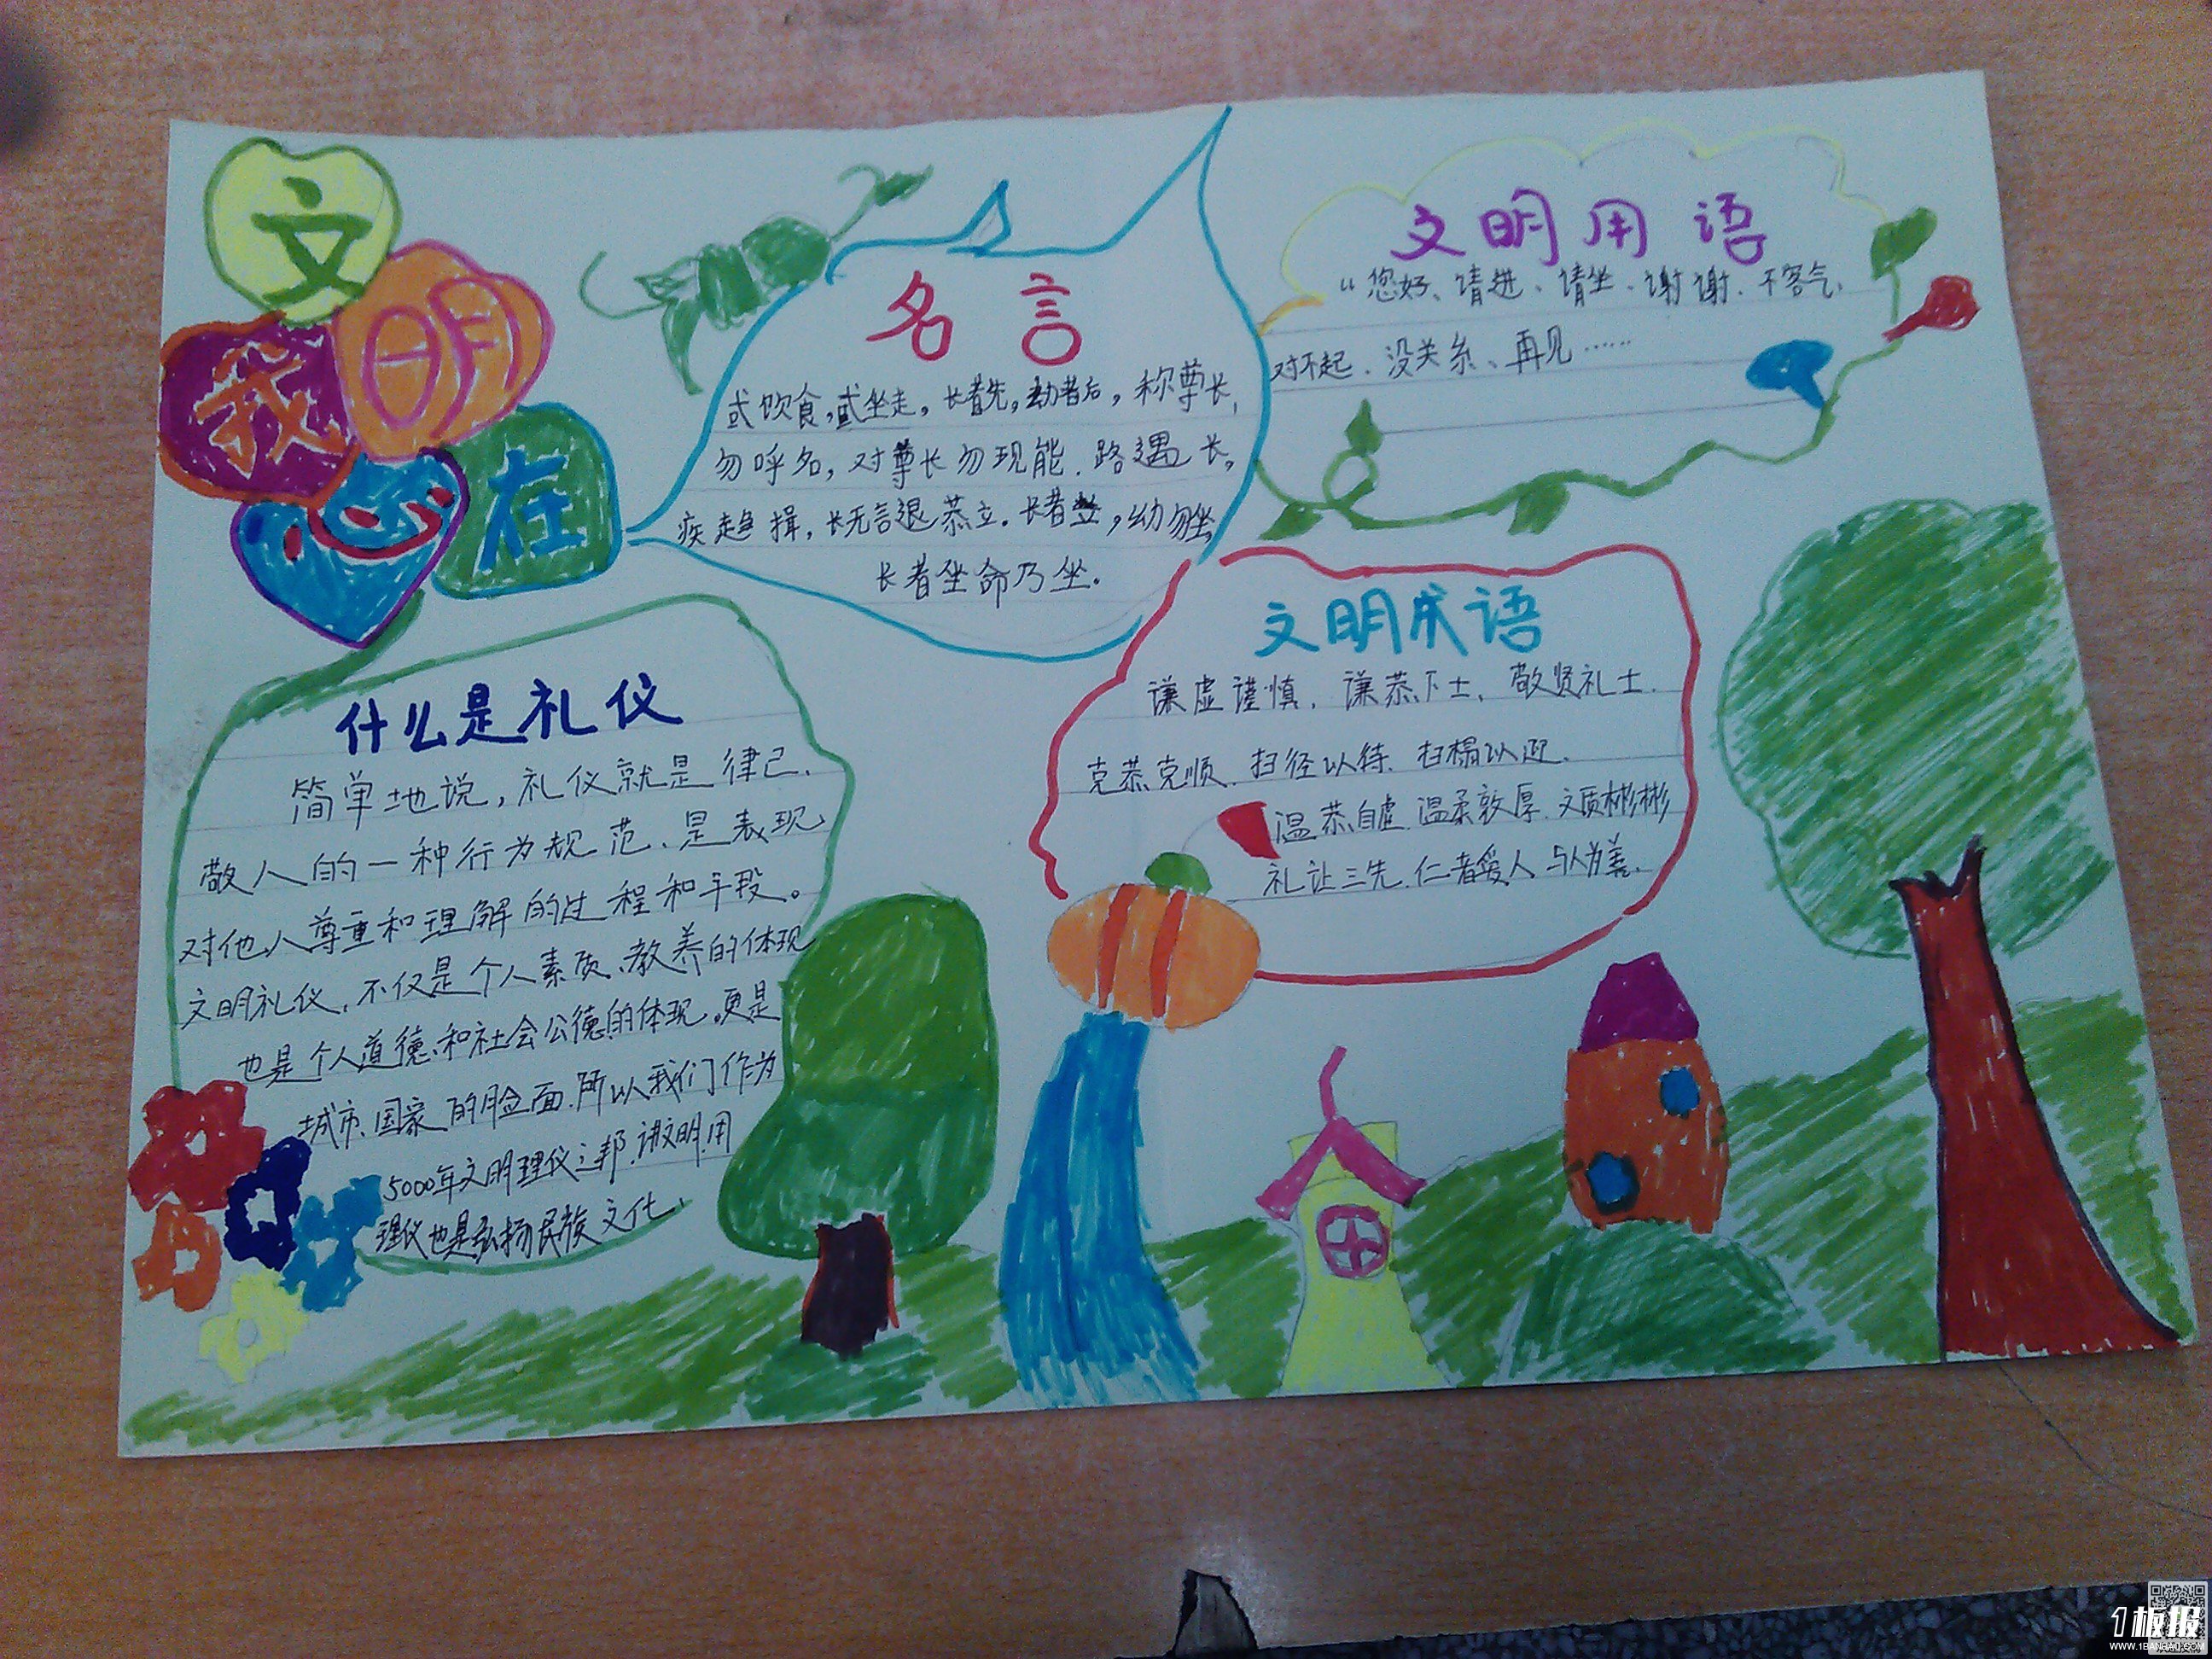 文
明
在
我
心
名言
或饮食,或坐走,长者先,幼者后,称尊长,
勿呼名,对尊长勿现能.路遇长,
疾趋揖,长无言退恭立.长者立,幼勿坐,
长者坐命乃坐.
文明用语
“您好、请进、请坐、谢谢、不客气、
对不起、没关系、再见……
文明成语
谦虚谨慎,谦恭下士、敬贤礼士.
克恭克顺.扫径以待.扫榻以迎.
温恭自虚.温柔敦厚.文质彬彬
礼让三先.仁者爱人.与人为善.
什么是礼仪
简单地说,礼仪就是律己、
敬人的一种行为规范,是表现
对他人尊重和理解的过程和手段。
文明礼仪,不仅是个人素质、教养的体现
也是个人道德和社会公德的体现,更是
城市、国家的脸面.所以我们作为
5000年文明理仪之邦,讲文明.用
理仪也是弘扬民族文化、
1板报
WWW.1BANBAO.COM